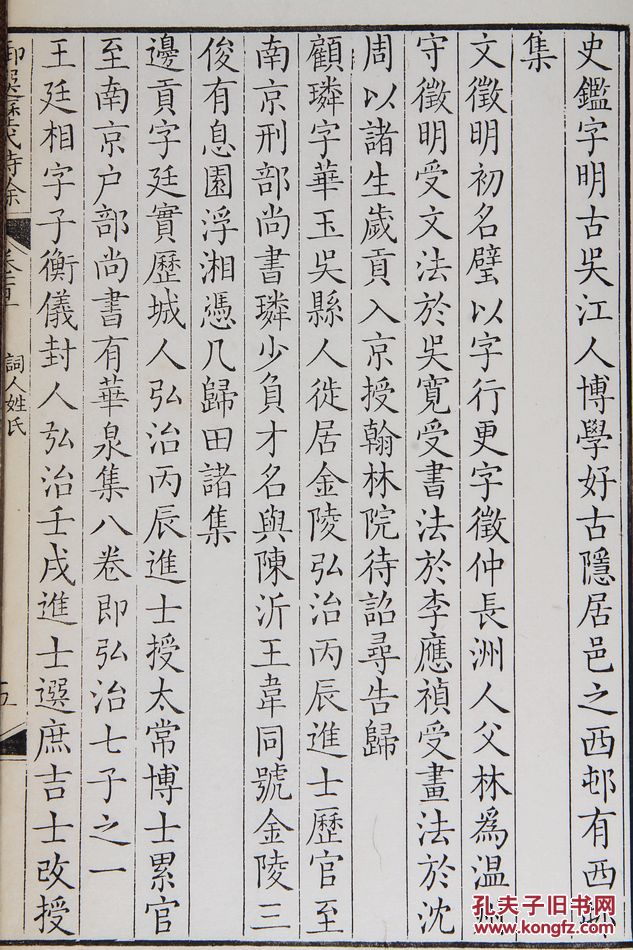 史鑑字明古吳江人博學好古隱居邑之西邨有西邨
集
文徵明初名璧以字行更字徵仲長洲人父林爲溫州
守徵明受文法於吳寬受書法於李應禎受畫法於沈
周以諸生歲貢入京授翰林院待詔尋告歸
顧璘字華玉吳縣人徙居金陵弘治丙辰進士歷官至
南京刑部尚書璘少負才名與陳沂王韋同號金陵三
俊有息園浮湘憑几歸田諸集
邊貢字廷實歷城人弘治丙辰進士授太常博士累官
至南京戶部尚書有華泉集八卷即弘治七子之一
王廷相字子衡儀封人弘治壬戌進士選庶吉士改授
御選歷代詩餘
詞人姓氏
五
孔夫子旧书网
www.kongfz.com